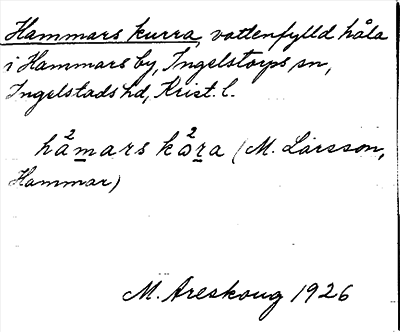 Hammars kurra, vattenfylld håla
i Hammars by, Ingelstorps sn,
Ingelstads hd, Krist. l.
hå²mars kω²ra (M. Larsson,
Hammar)
M. Areskoug 1926